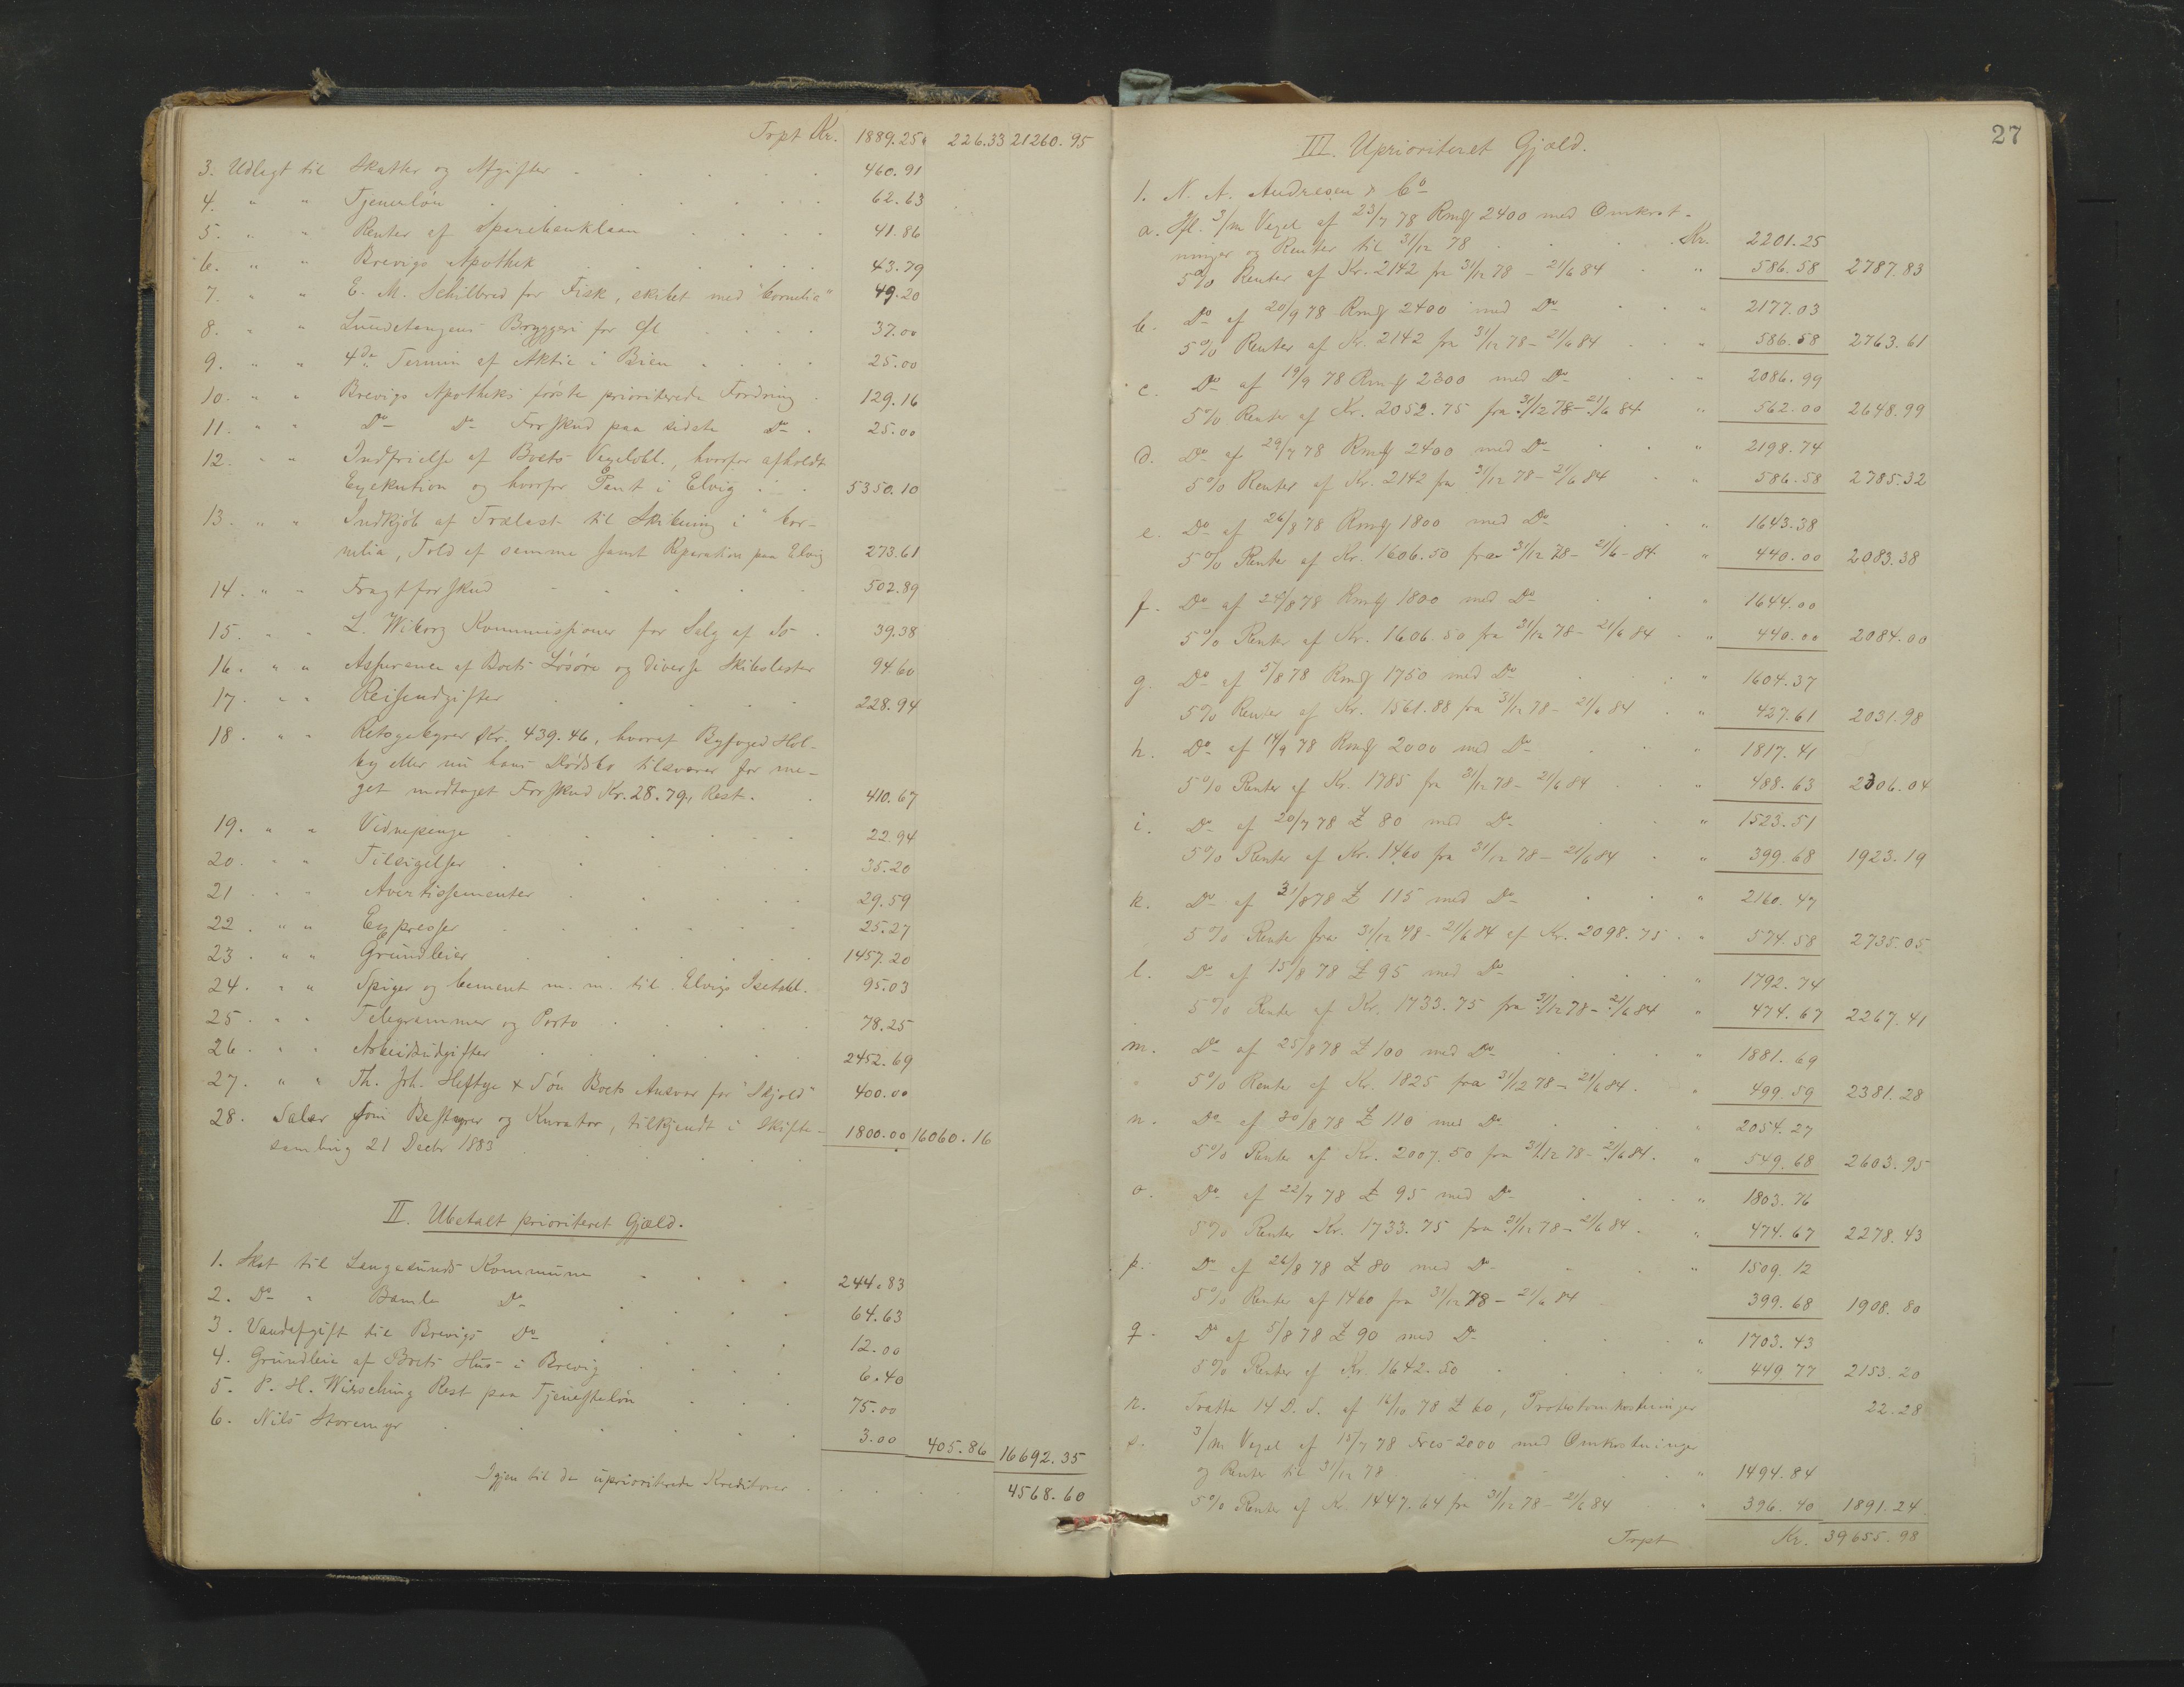 Trpt Kr. 1889.25 226.33 21260.95
3. Udlagt til Skatter og Afgifter 460.91
4. " " Tjenerløn 62.63
5. " " Renter af Sparebanklaan 41.86
6. " " Brevigs Apothek 43.79
7. " " E. M. Schilbred for Fisk, skibet med "Cornelia" 49.20
8. " " Lundetangens Bryggeri for Øl 37.00
9. " " 4de Termin af Aktie i Bien 25.00
10. " " Brevigs Apotheks første prioriterede Fordring 129.16
11. " " Do Do Forskud paa sidste Do 25.00
12. " " Indfrielse af Boets Vexelobl., hvorfor afholdt
Exekution og hvorfor Pant i Elvig 5350.10
13. " " Indkjøb af Trælast til Skibning i "Cor-
nelia, Told af samme samt Reparation paa Elvig 273.61
14. " " Fragtforskud 502.89
15. " " L. Wiborg Kommissioner for Salg af Is 39.38
16. " " Assurance af Boets Løsøre og diverse Skibslaster 94.60
17. " " Reiseudgifter 228.94
18. " " Retsgebyrer Kr. 439.46, hvoraf Byfoged Hol-
by eller nu hans Dødsbo tilsvarer for me-
get modtaget Forskud Kr. 28.79, Rest. 410.67
19. " " Vidnepenge 22.94
20. " " Tilsigelser 35.20
21 " " Avertissementer 29.59
22. " " Expresser 25.27
23. " " Grundleier 1457.20
24. " " Spiger og Cement m. m. til Elvigs Isetabl. 95.03
25 " " Telegrammer og Porto 78.25
26. " " Arbeidsudgifter 2452.69
27. " " Th. Joh. Heftye & Søn Boets Ansvar for "Skjold" 400.00
28. Salær som Bestyrer og Kurator, tilkjendt i Skifte-
samling 21 Decbr 1883 1800.00 16060.16
II. Ubetalt prioriteret Gjæld.
1. Skat til Langesunds Kommune 244.83
2. Do " Bamle Do 64.63
3. Vandafgift til Brevigs Do 12.00
4. Grundleie af Boets Hus i Brevig 6.40
5. P. H. Wirsching Rest paa Tjenesteløn 75.00
6. Nils Storemyr 3.00 405.86 16692.35
Igjen til de uprioriterede Kreditorer 4568.60
27
III. Uprioriteret Gjæld.
1. N. A. Andresen & Co
a. Ifl. 3/m Vexel af 23/7 78 Rmk 2400 med Omkost-
ninger og Renter til 31/12 78 Kr. 2201.25
5% Renter af Kr. 2142 fra 31/12 78 - 21/6 84 " 586.58 2787.83
b. Do af 20/9 78 Rmk 2400 med Do " 2177.03
5% Renter af Kr. 2142 fra 31/12 78 - 21/6 84 " 586.58 2763.61
c. Do af 19/9 78 Rmk 2300 med Do " 2086.99
5% Renter af Kr. 2052.75 fra 31/12 78 - 21/6 84 " 562.00 2648.99
d. Do af 29/7 78 Rmk 2400 med Do " 2198.74
5% Renter af Kr. 2142 fra 31/12 78 - 21/6 84 " 586.58 2785.32
e. Do af 26/8 78 Rmk 1800 med Do " 1643.38
5% Renter af Kr. 1606.50 fra 31/12 78 - 21/6 - 84 " 440.00 2083.38
f. Do af 24/8 78 Rmk 1800 med Do " 1644.00
5% Renter af Kr. 1606.50 fra 31/12 78 - 21/6 84 " 440.00 2084.00
g. Do af 5/8 78 Rmk 1750 med Do " 1604.37
5% Renter af Kr. 1561.88 fra 31/12 78 - 21/6 84 " 427.61 2031.98
h. Do af 14/9 78 Rmk 2000 med Do " 1817.41
5% Renter af Kr. 1785 fra 31/12 78 - 21/6 84 " 488.63 2306.04
i. Do af 20/7 78 £ 80 med Do " 1523.51
5% Renter af Kr. 1460 fra 31/12 78 - 21/6 84 " 399.68 1923.19
k. Do af 31/8 78 £ 115 med Do " 2160.47
5% Renter fra 31/12 78 - 21/6 84 af Kr. 2098.75 " 574.58 2735.05
l. Do af 15/8 78 £ 95 med Do " 1792.74
5% Renter af Kr. 1733.75 fra 31/12 78 - 21/6 84 " 474.67 2267.41
m. Do af 25/8 78 £ 100 med Do " 1881.69
5% Renter af Kr. 1825 fra 31/12 78 - 21/6 84. " 499.59 2381.28
n. Do af 30/8 78 £ 110 med Do " 2054.27
5% Renter af Kr. 2007.50 fra 31/12 78 - 21/6 84. " 549.68 2603.95
o. Do af 22/7 78 £ 95 med Do " 1803.76
5% Renter Kr. 1733.75 fra 31/12 78 - 21/6 84 " 474.67 2278.43
p. Do af 26/8 78 £ 80 med Do " 1509.12
5% Renter af 1460 fra 31/12 78 - 21/6 84 399.68 1908.80
q. Do af 5/8 78 £ 90 med Do " 1703.43
5% Renter af Kr. 1642.50 " 449.77 2153.20
r. Tratte 14 D. S. af 16/10 78 £ 60, Protestomkostninger 22.28
s. 3/m Vexel af 15/7 78 Frcs 2000 med Omkostninger
og Renter til 31/12 78 " 1494.84
5% Renter af Kr. 1447.64 fra 31/12 78 - 21/6 84 " 396.40 1891.24
Trpt Kr. 39655.98